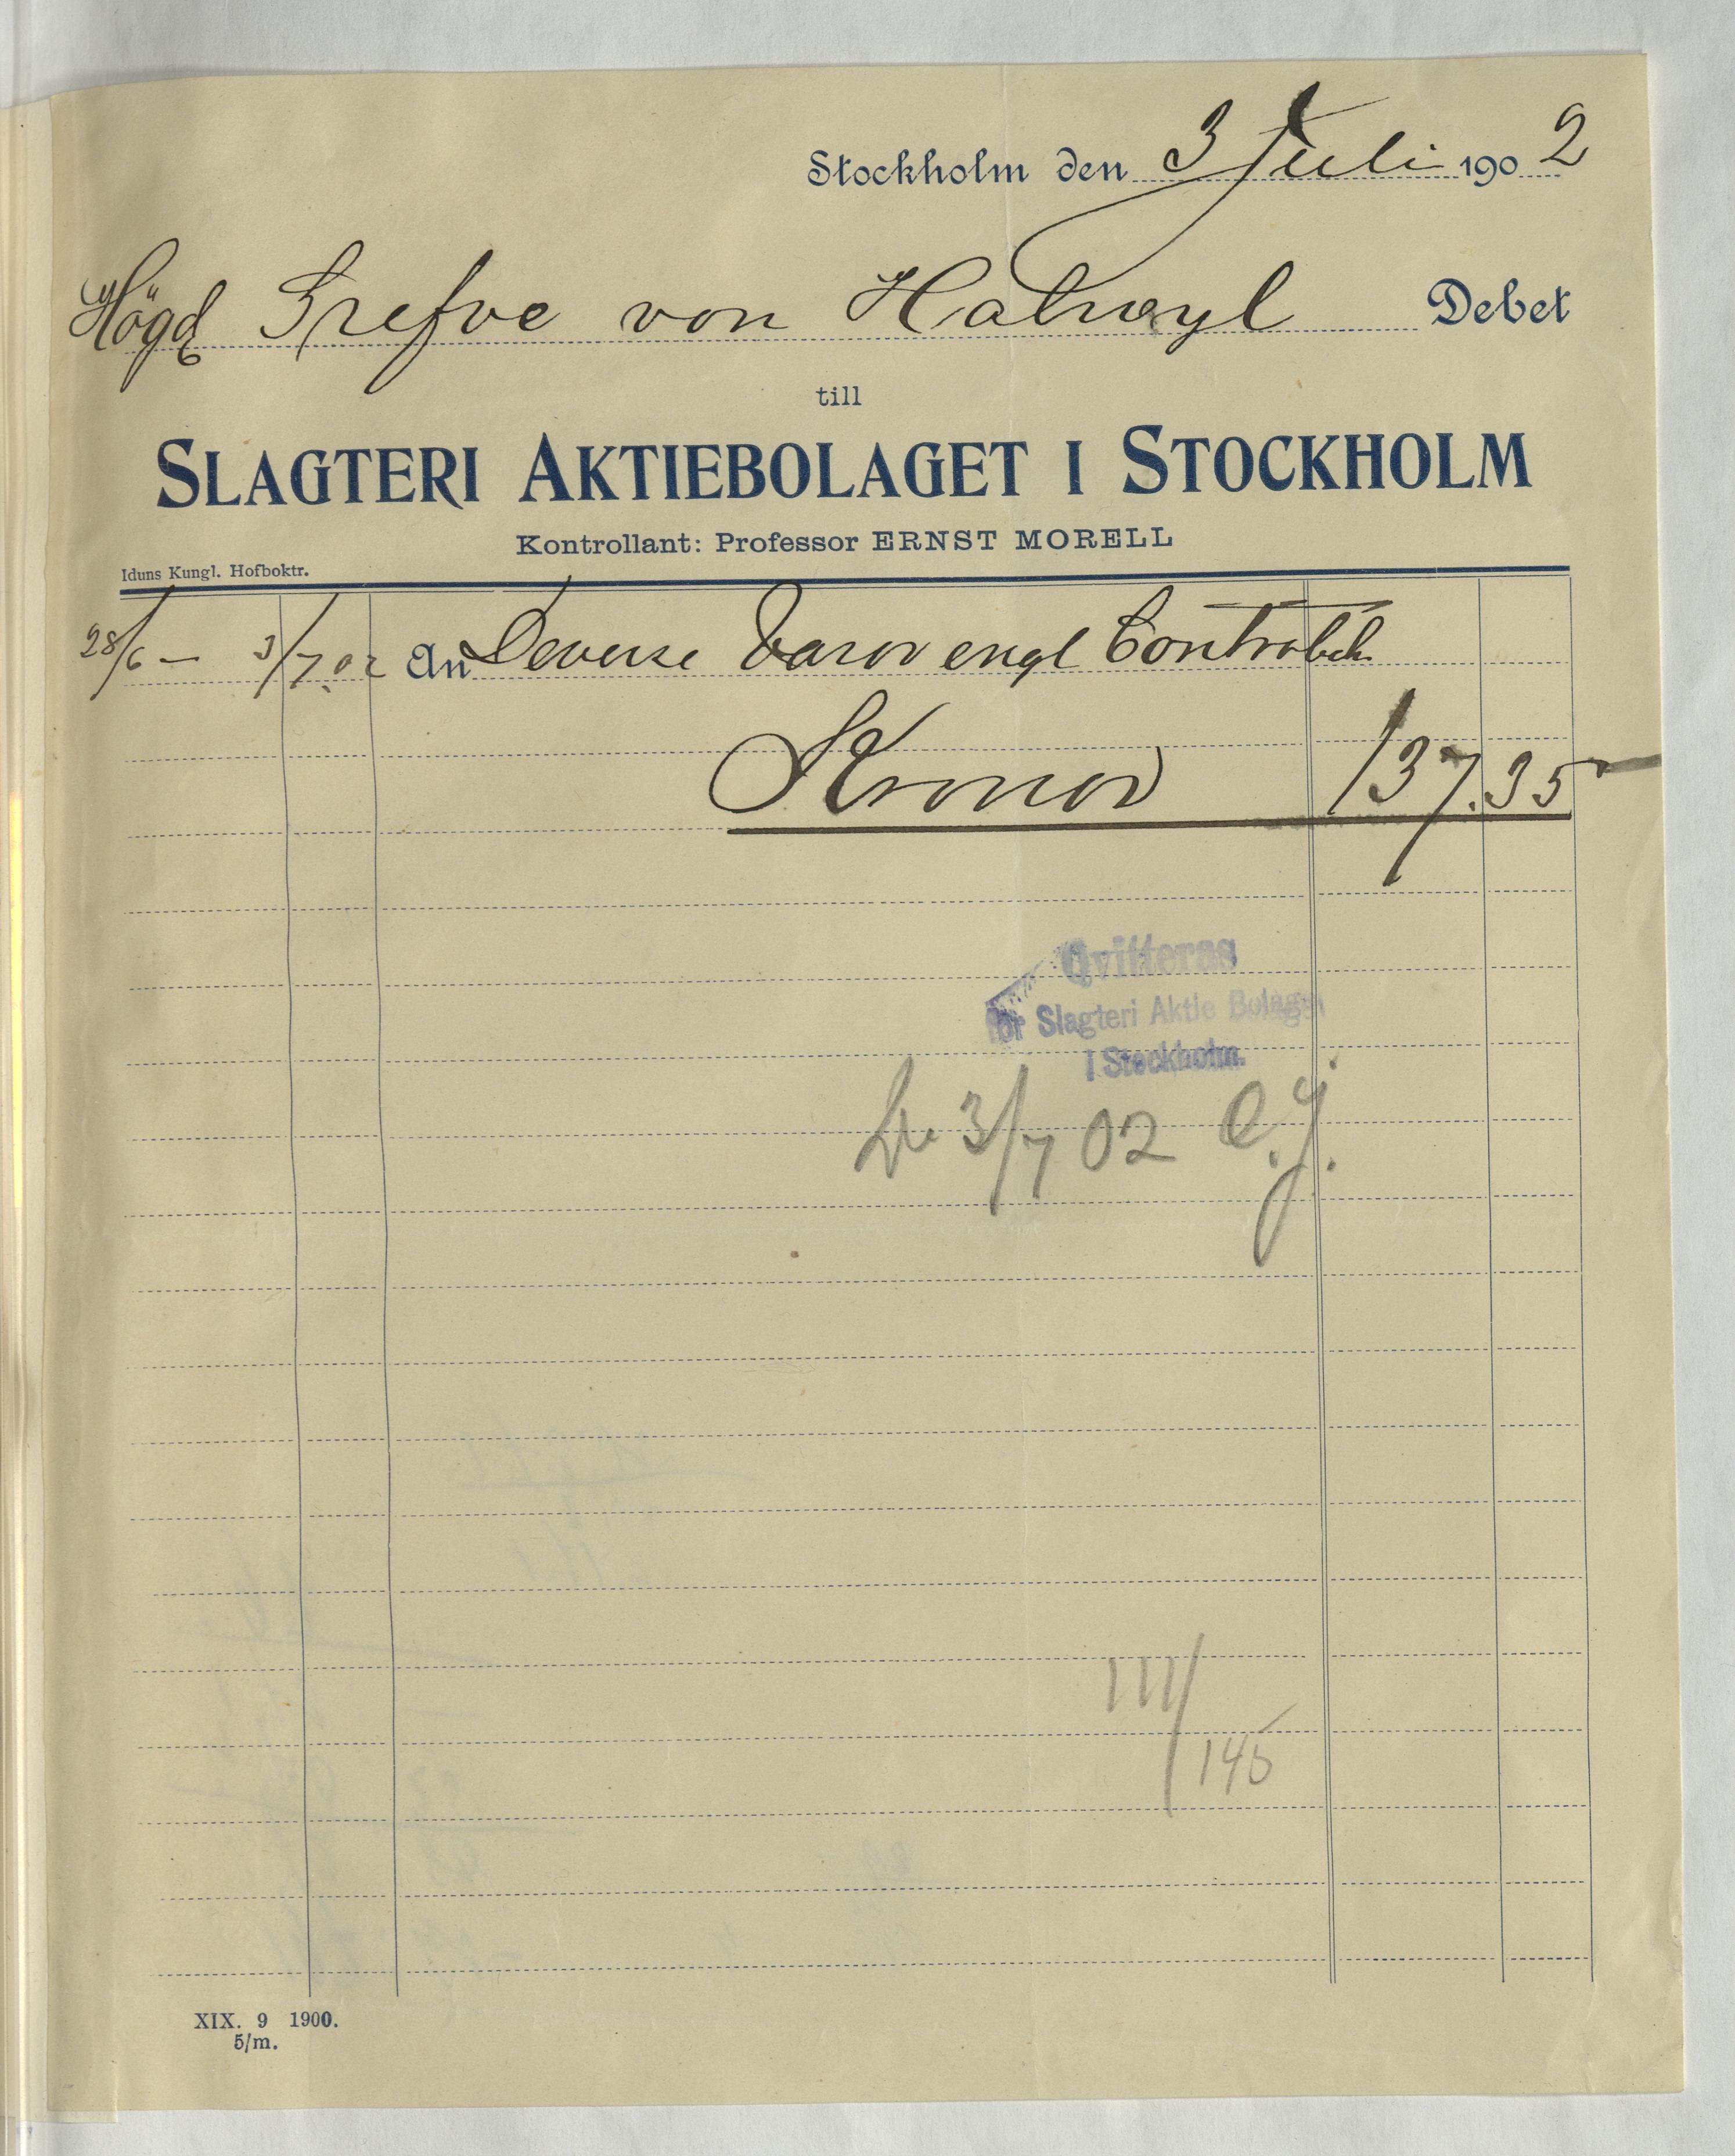 Stockholm den 3 Juli 1902
Högd Grefve von Halwyl Debet
till
SLAGTERI AKTIEBOLAGET I STOCKHOLM
Kontrollant: Professor ERNST MORELL
Iduns Kungl. Hofboktr.
28/6 – 3/7 02 An Deverse varor engl Contrabok
Kronor 137.35
Qvitteras
för Slagteri Aktie Bolaget
I Stockholm.
3/7 02 C.J.
111/145
XIX. 9 1900.
5/m.